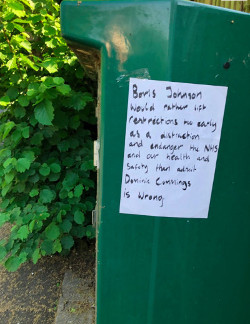 Boris Johnson
would rather lift
restrictions too early
as a distraction
and endanger the NHS
and our health and
safety than admit
Dominic Cummings
is wrong.